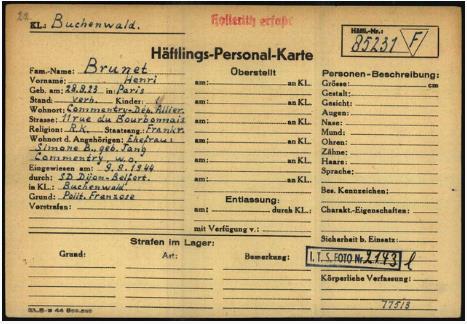 22
KL: Buchenwald.
Hollerith erfaßt
Häftl.-Nr.:
85231 F
Häftlings-Personal-Karte
Fam.-Name: Brunet
Vorname: Henri
Geb. am: 28.8.23 in: Paris
Stand: verh. Kinder: 1
Wohnort: Commentry-Dép. Allier.
Strasse: 11 rue du Bourbonnais
Religion: R.K. Staatsang.: Frankr.
Wohnort d. Angehörigen: Ehefrau:
Simone B., geb. Jang
Commentry w.o.
Eingewiesen am: 9.9.1944
durch: SD Dijon-Belfort.
in KL.: Buchenwald
Grund: Polit. Franzose
Vorstrafen:
Überstellt
am: an KL.
am: an KL.
am: an KL.
am: an KL.
am: an KL.
am: an KL.
Entlassung:
am: durch KL.:
mit Verfügung v.:
Personen-Beschreibung:
Grösse: cm
Gestalt:
Gesicht:
Augen:
Nase:
Mund:
Ohren:
Zähne:
Haare:
Sprache:
Bes. Kennzeichen:
Charakt.-Eigenschaften:
Sicherheit b. Einsatz:
I.T.S. FOTO Nr 2143
Körperliche Verfassung:
77513
Strafen im Lager:
Grund: Art: Bemerkung: